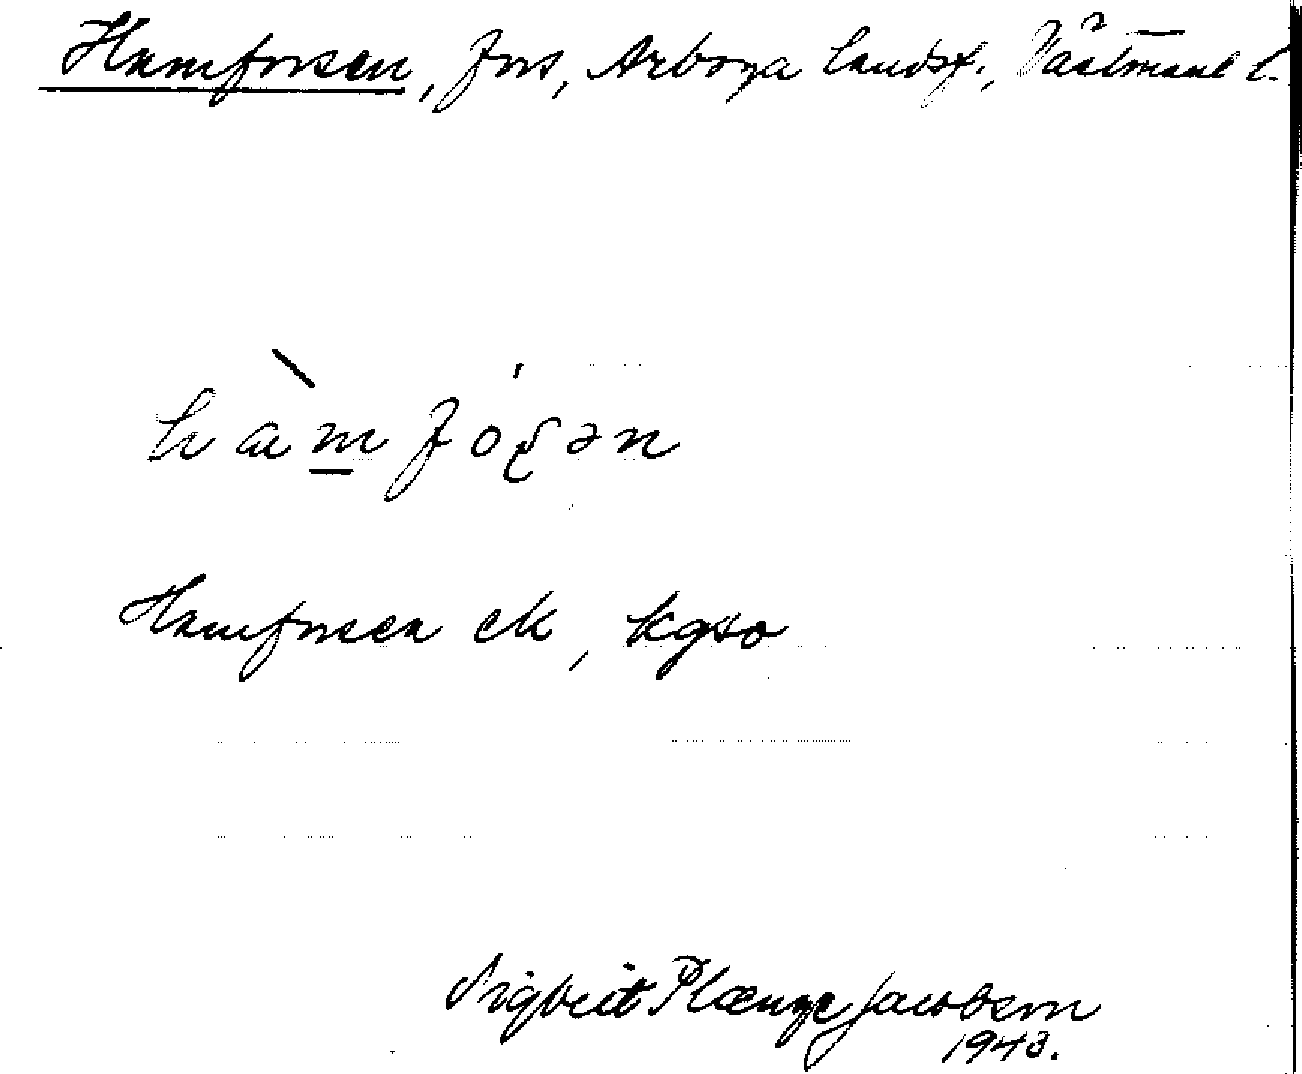 Hamforsen, fors, Arboya landsf., Västmanl l.
hàmfóʂən
Hamforsen ek, kgso
Sigbrit Plænge Jacobson
1943.